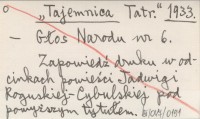 o „Tajemnica Tatr." 1933.
- Głos Narodu nr. 6.
Zapowiedź druku w od-
cinkach powieści Jadwigi
Roguskiej-Cybulskiej pod
powyższym tytułem.